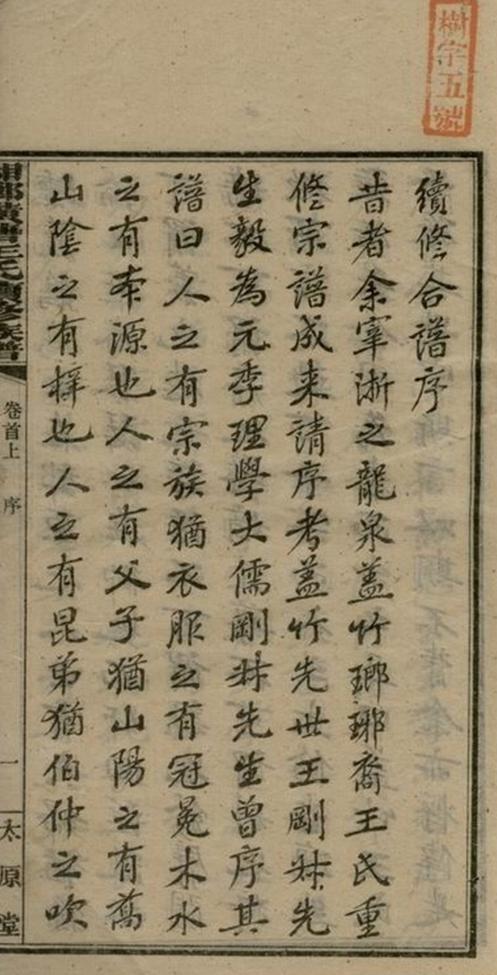 樹字五號
續修合譜序
昔者余宰浙之龍泉蓋竹瑯琊裔王氏重
修宗譜成来請序考蓋竹先世王剛叔先
生毅為元季理學大儒剛叔先生曾序其
譜曰人之有宗族猶衣服之有冠冕木水
之有本源也人之有父子猶山陽之有喬
山陰之有梓也人之有昆弟猶伯仲之吹
王氏續修族譜
卷首上
序
一
太原堂